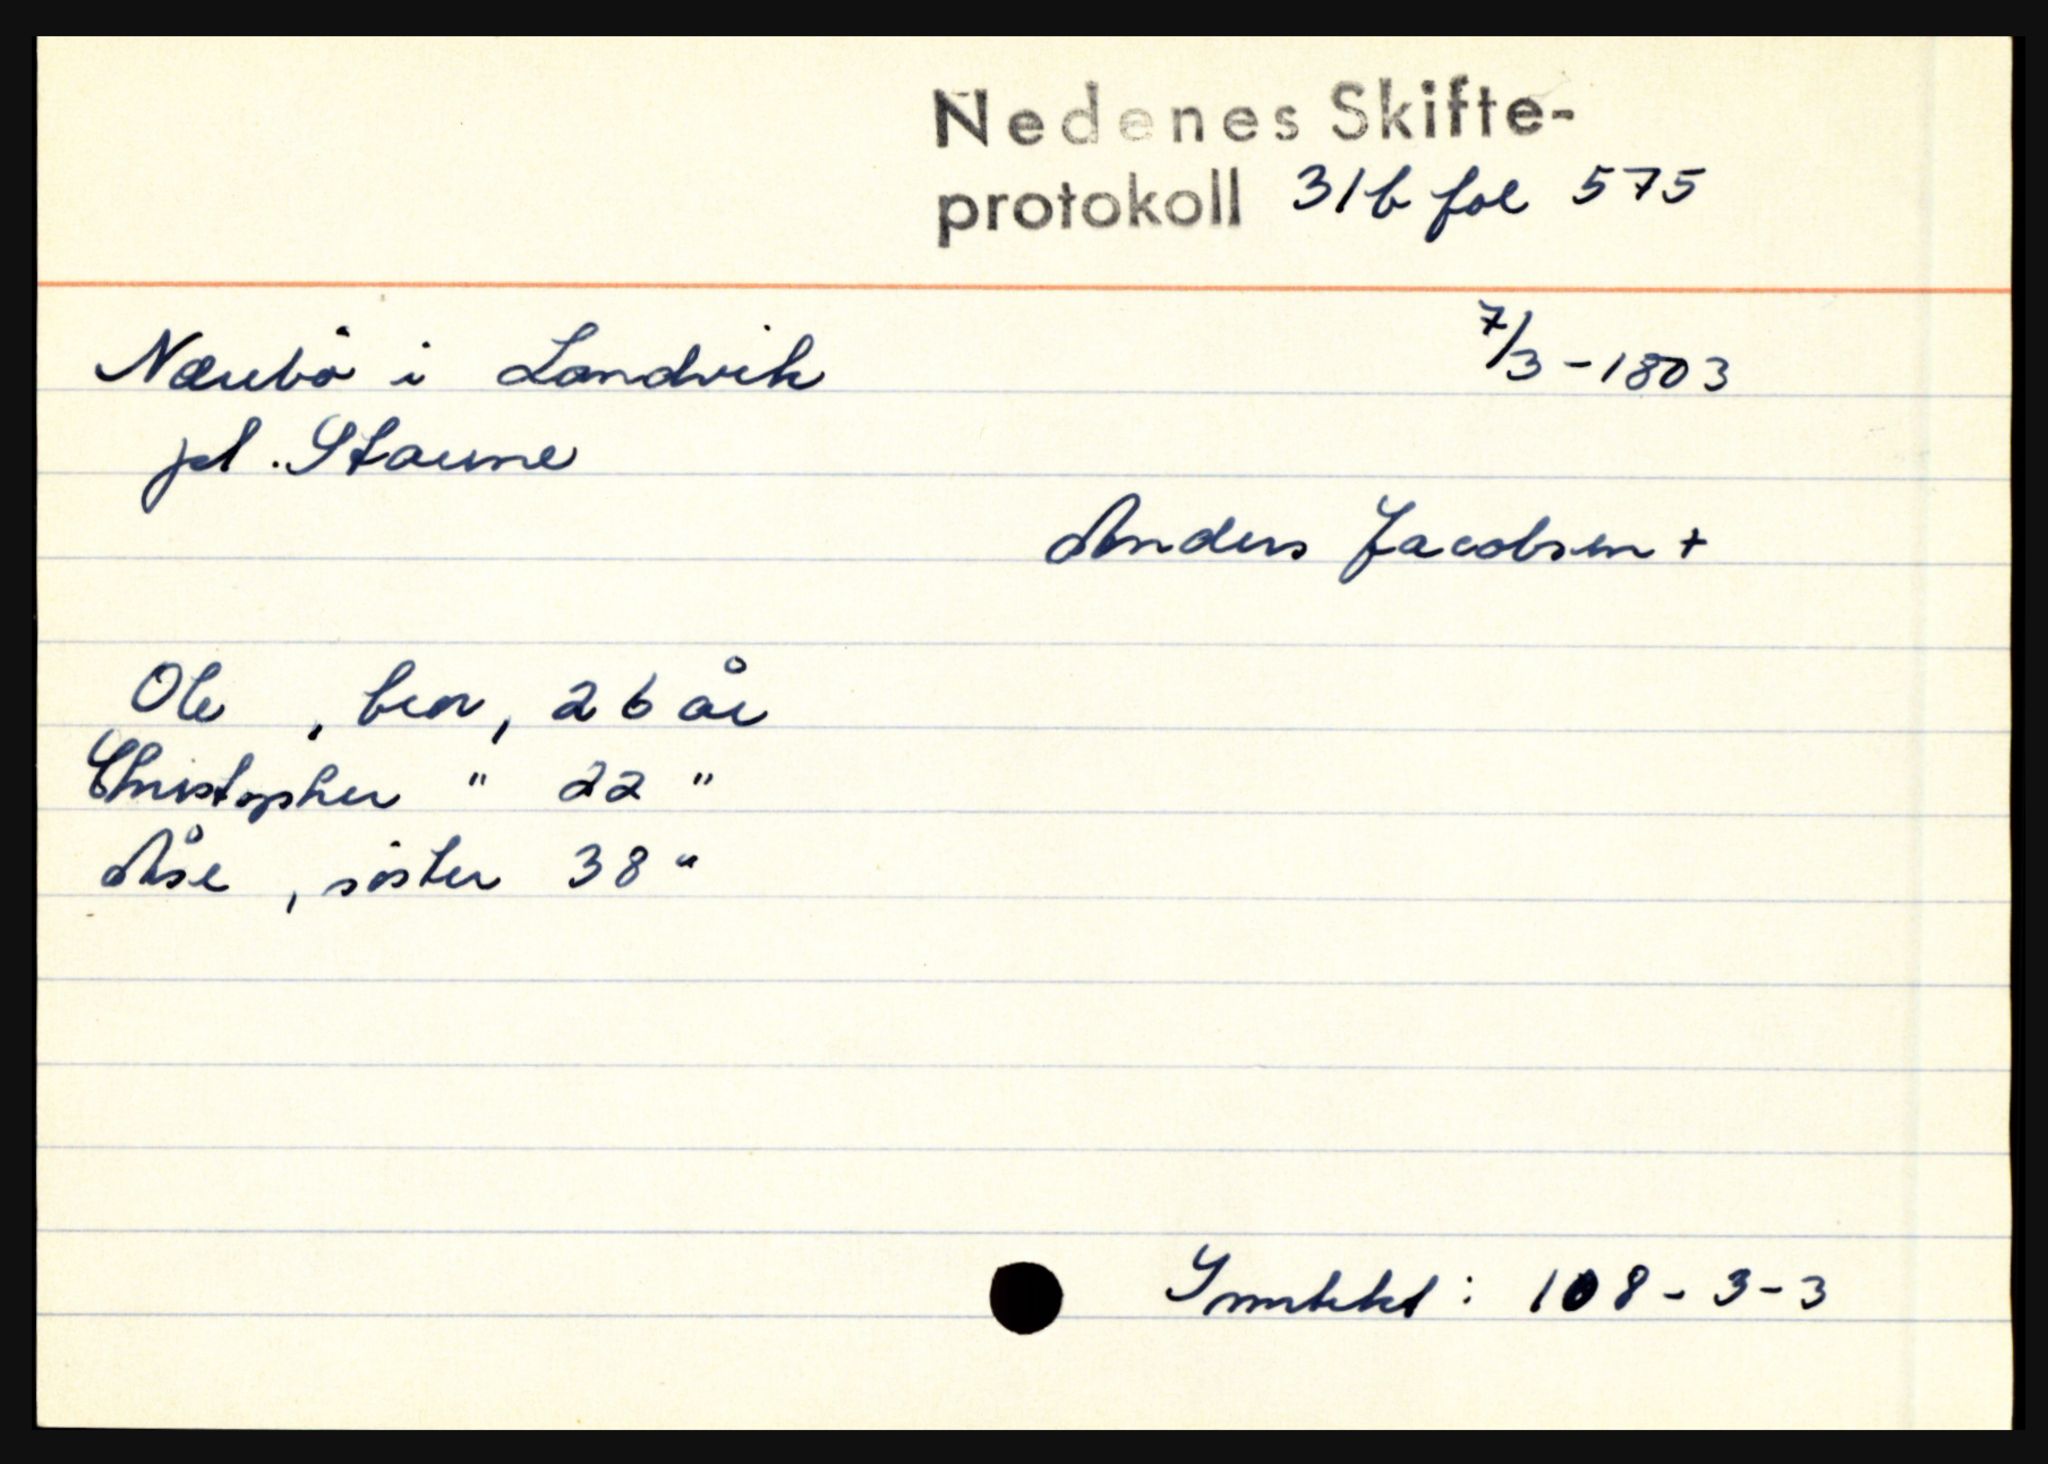 Nedenes Skifte-
protokoll 31b fol 575
Nærebø i Landvik 7/3-1803
pl. Staune
Anders Jacobsen +
Ole , bror, 26 år
Christopher " 22 "
Åse , søster 38 "
Inntekt : 108-3-3